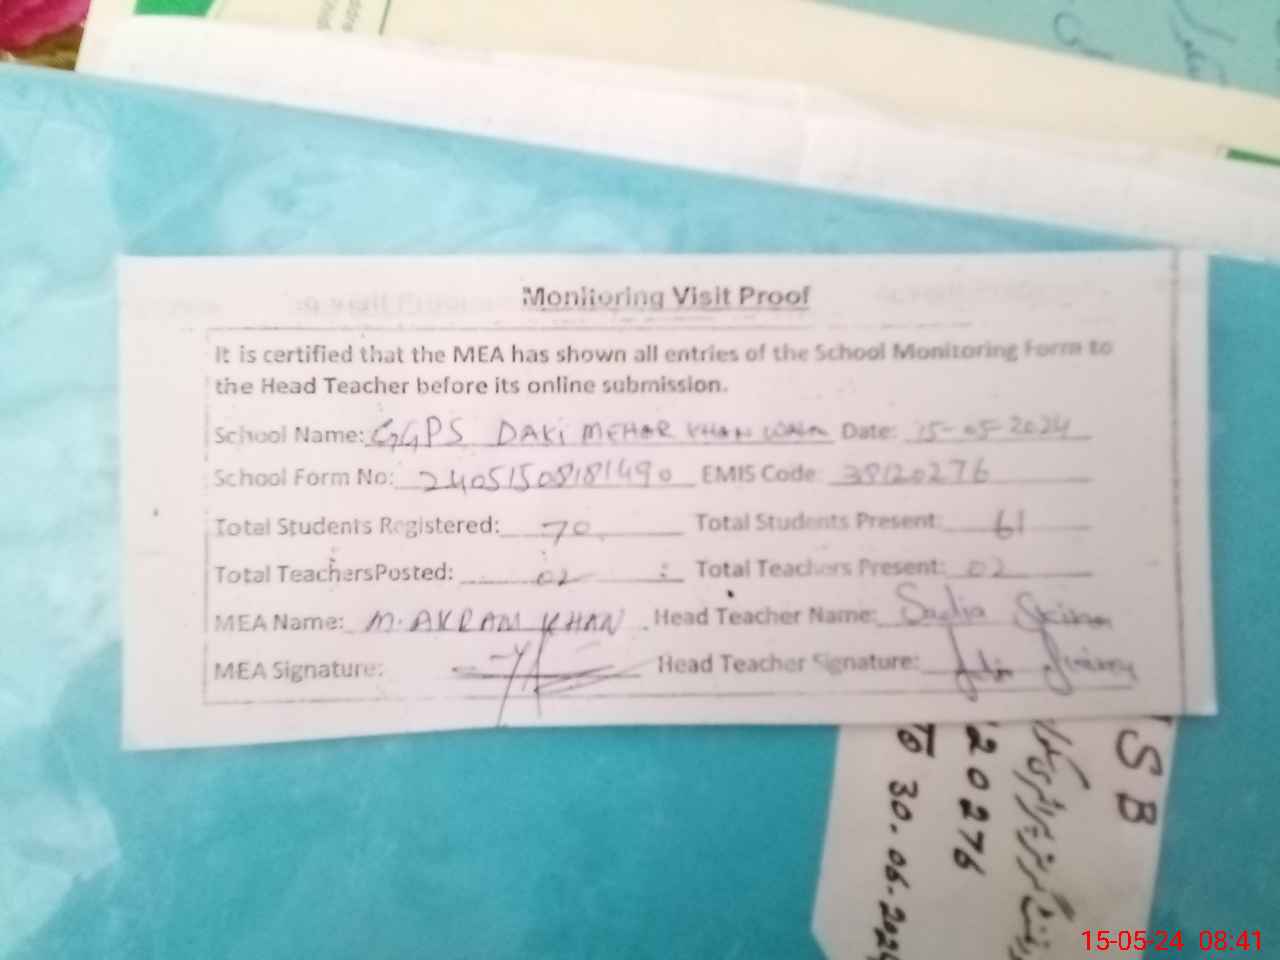 Monitoring Visit Proof
It is certified that the MEA has shown all entries of the School Monitoring Form to
the Head Teacher before its online submission.
School Name: GGPS DAKI MEHAR KHAN WALA Date: 15-05-2024
School Form No: 24051508181490 EMIS Code: 38120276
Total Students Registered: 70 Total Students Present: 61
Total TeachersPosted: 02 : Total Teachers Present: 02
MEA Name: M. AKRAM KHAN Head Teacher Name: Sadia
MEA Signature: Head Teacher Signature:
SB
20276
TO 30.06.2024
15-05-24 08:41